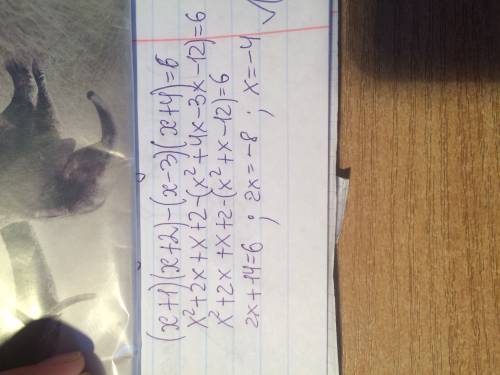 (x+1)(x+2)-(x-3)(x+4)=6
x²+2x+x+2-(x²+4x-3x-12)=6
x²+2x+x+2-(x²+x-12)=6
2x+14=6 ; 2x=-8 ; x=-4